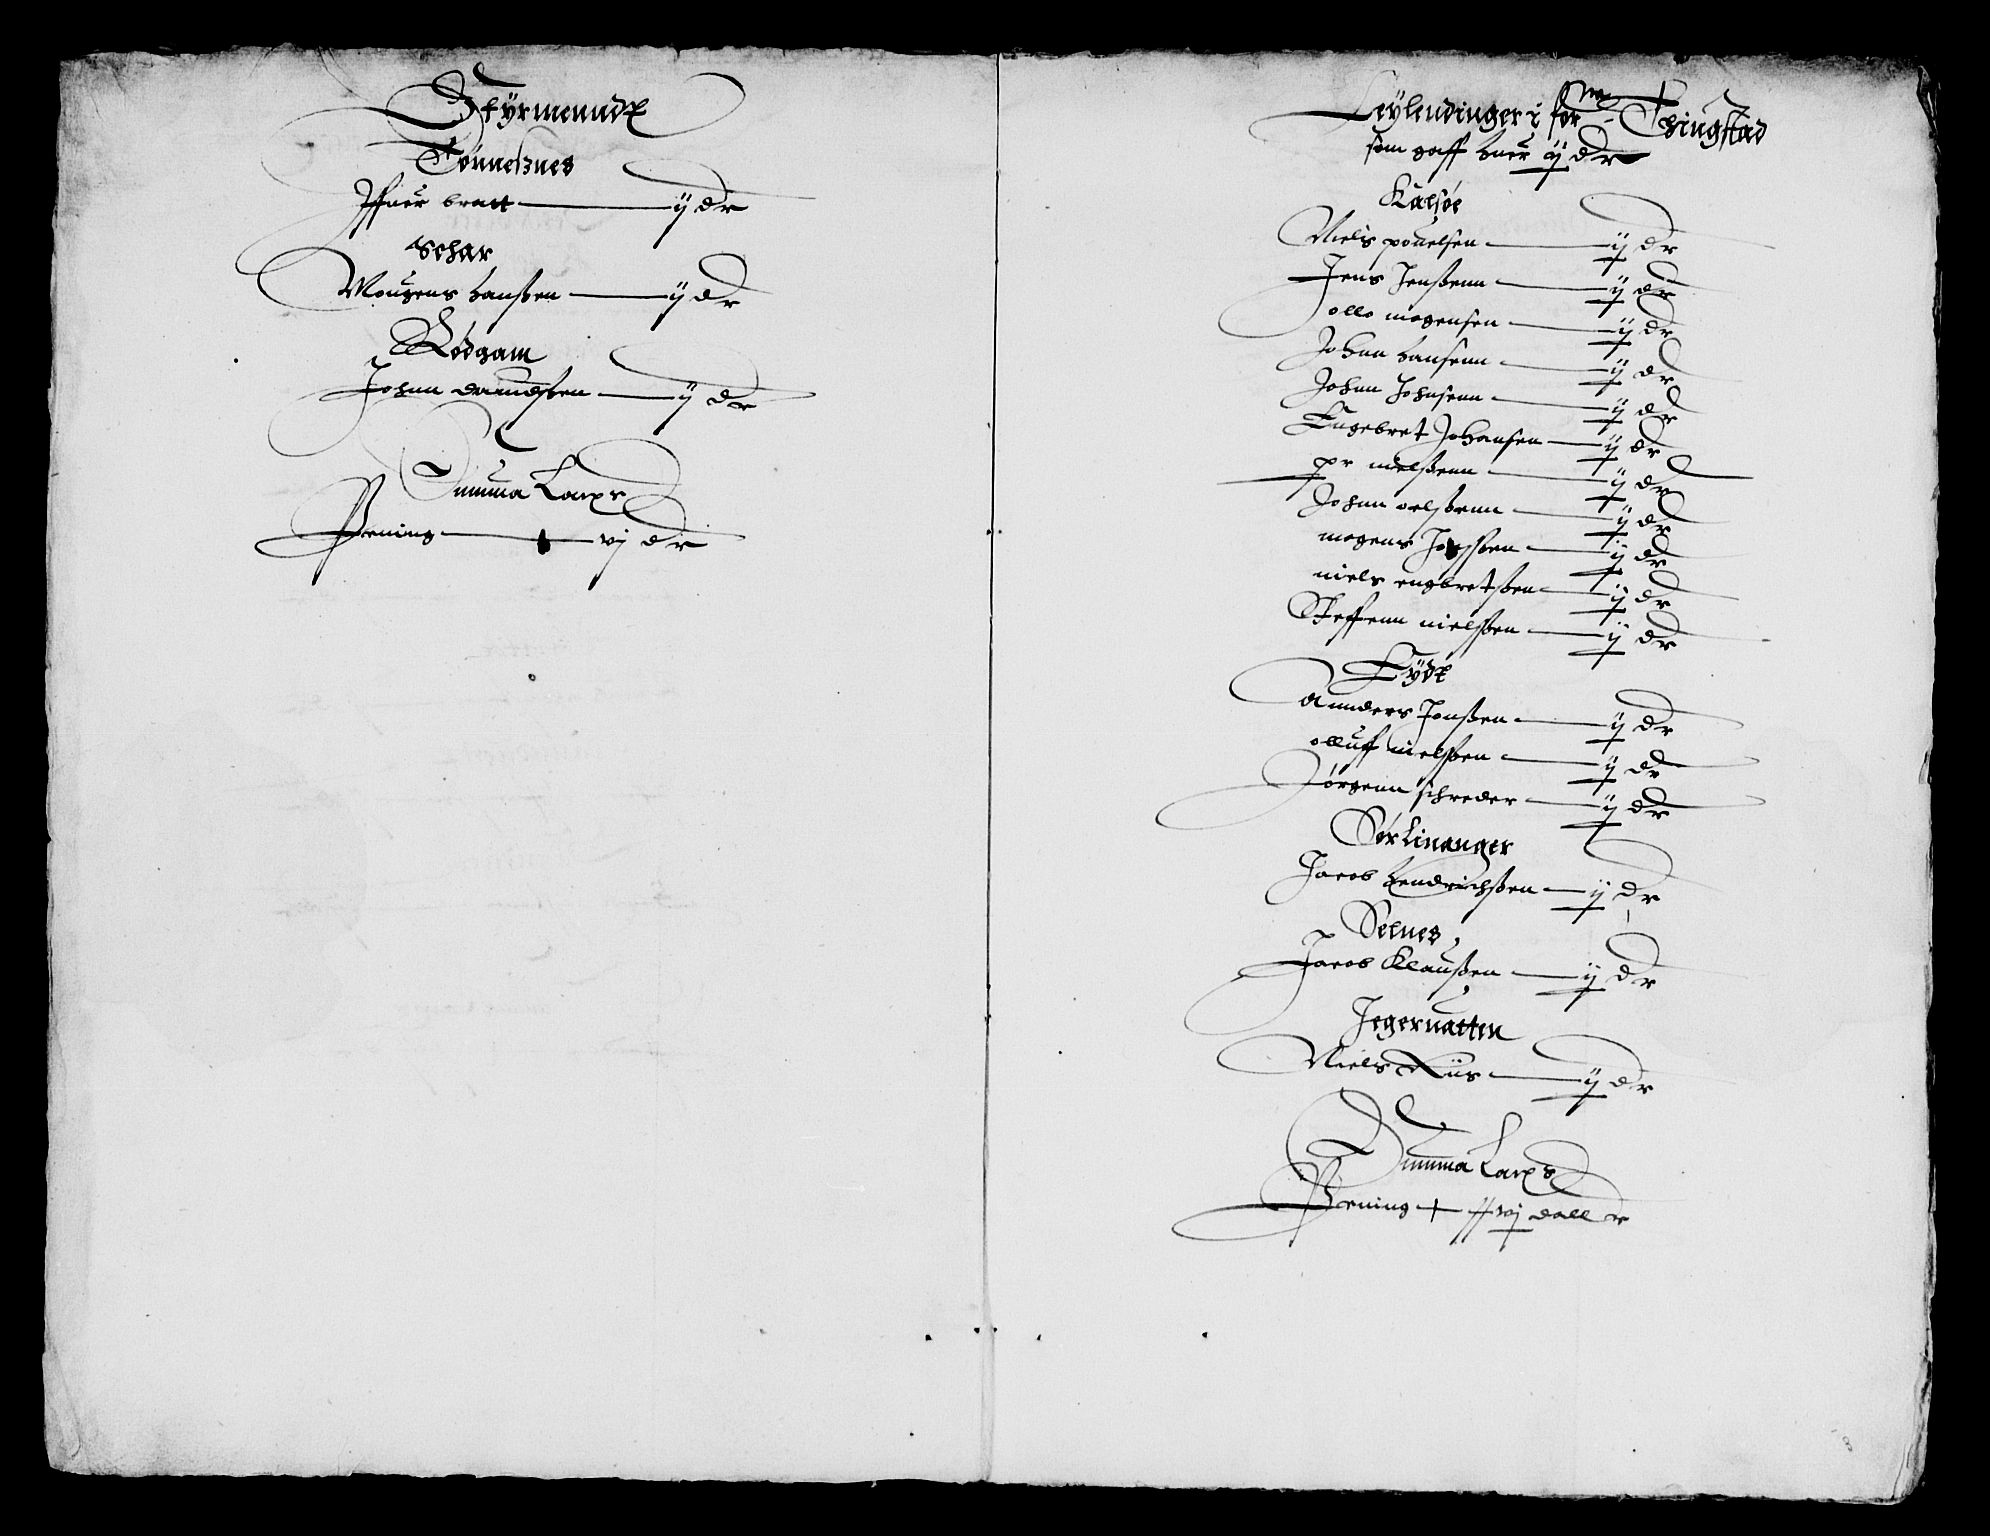 Styrmenndt
Tönneßnes
Iffuer bratt — ij dr
Schar
Mougens hanßen — ij dr
Rödgam
Johan dauidßen — ij dr
Summa Larps
Pening — vj dr
Leylendinger i for ne Thingstad
som gaff huer ij dr
Kalsöe
Niels pouelsen — ij dr
Jens Jenßenn — ij dr
ollo mogensen — ij dr
Johan hansenn — ij dr
Johan Johnsenn — ij dr
Engebret Johansen — ij dr
pr nielßenn — ij dr
Johan oelßenn — ij dr
mogens Jonßen — ij dr
niels engbretßen — ij dr
Steffenn nielßen — ij dr
Eydt
Annders Jonßen — ij dr
olluff nielßen — ij dr
Jörgenn schreder — ij dr
Sør Linanger
Jacob hendrichßen — ij dr
Selnes
Jacob Klaußen — ij dr
Jegeruatten
Niels Riis — ij dr
Summa Larps
Pening — xxxvj daller
3